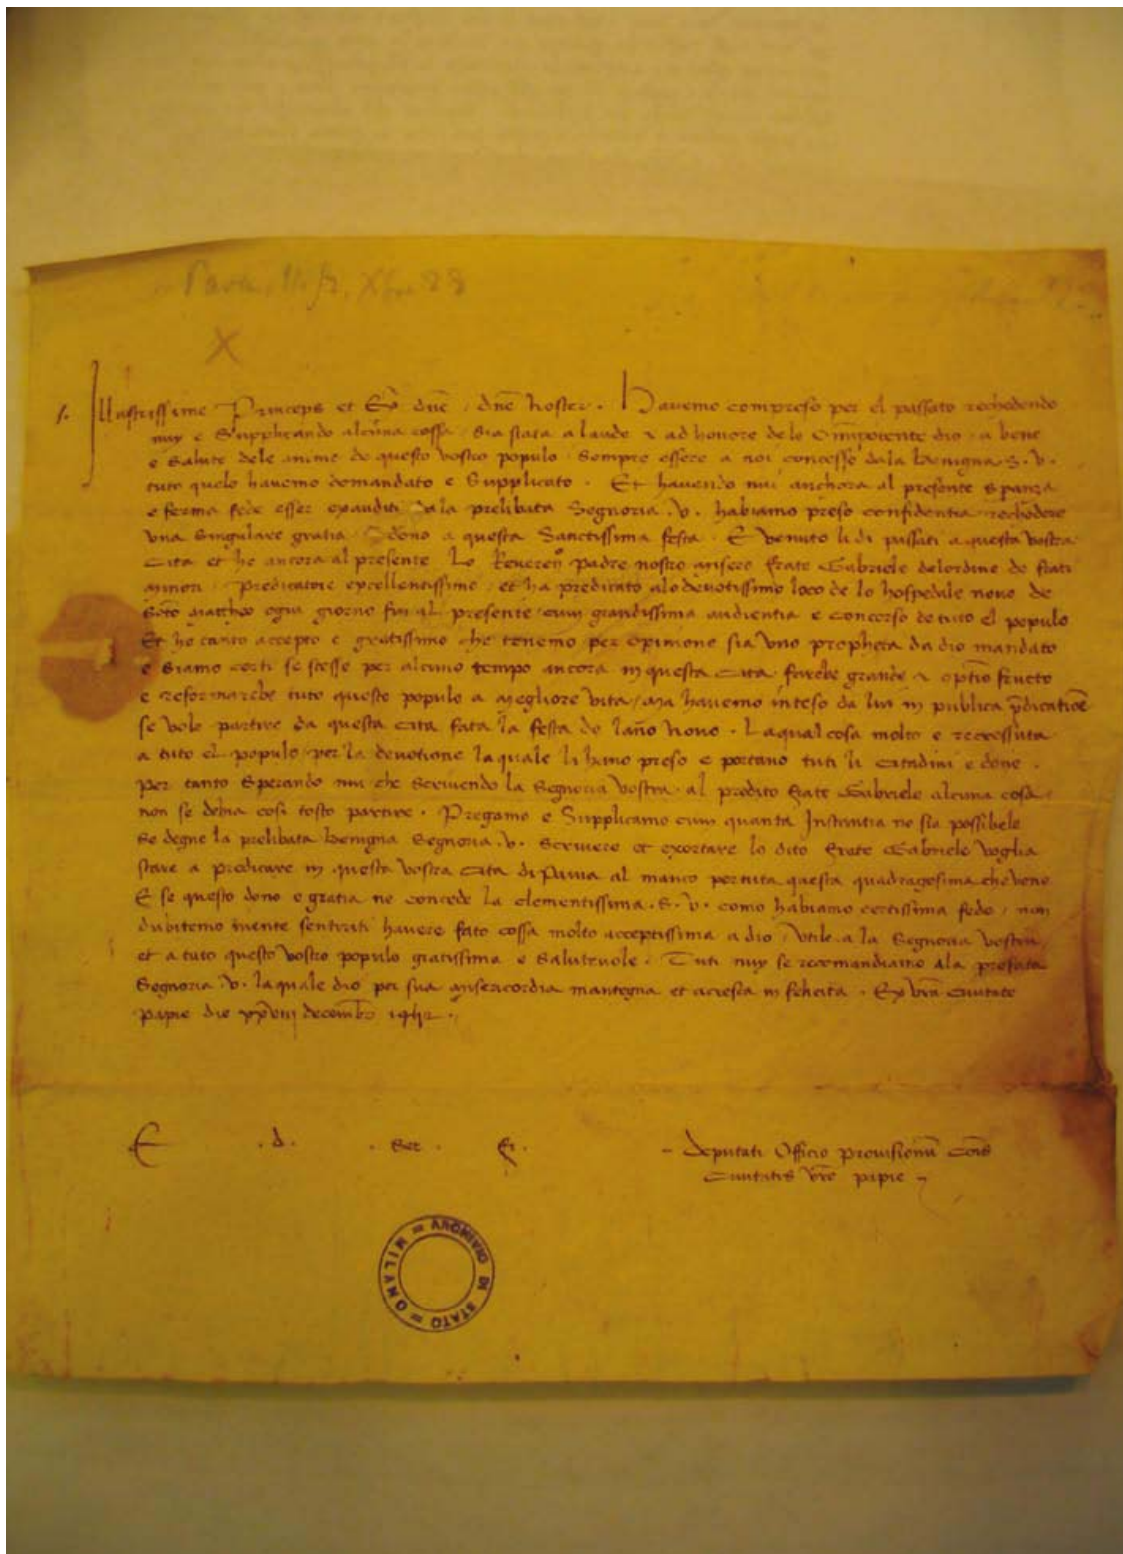 X
Illustrissime Princeps et Ex. dne dne noster. Havemo compreso per el passato rechedendo
nuy e Supplicando alcuna cossa sia stata a laude & ad honore delo Omnipotente dio a bene
e Salute dele anime de questo vostro populo Sempre essere a noi concesse dala benigna S. V.
tuto quelo havemo domandato e Supplicato. Et havendo nui anchora al presente Spanza
e ferma fede esser exauditi dala prelibata Segnoria .V. habiamo preso confidentia rechedere
una Singulare gratia dono a questa Sanctissima festa. E venuto li di passati a questa vostra
Cita et he ancora al presente Lo Reverendo Padre nostro misere frate Gabriele delordine de frati
minori Predicatore excellentissimo et ha predicato alo devotissimo loco de lo hospedale novo de
Scto Mattheo ogni giorno fin al presente cum grandissima audientia e concorso de tuto el populo
Et he tanto accepto e gratissimo che tenemo per opinione sia uno propheta da dio mandato
e Siamo certi se stesse per alcuno tempo ancora in questa Cita farebe grande & optimo fructo
e reformarebe tuto questo populo a megliore vita, Ma havemo inteso da lui in publica predicatione
se vole partire da questa cita fata la festa de lano novo. Laqual cosa molto e
a tuto el populo per la devotione laquale li hano preso e portano tuti li Citadini e done.
Per tanto Sperando nui che Scrivendo la Segnoria Vostra al predito frate Gabriele alcuna cosa
non se debia cosi tosto partire. Pregamo e Supplicamo cum quanta Instantia ne sia possibele
Se degne la prelibata benigna Segnoria .V. Scrivere et exortare lo dito frate Gabriele voglia
stare a predicare in questa vostra Cita di Pavia al manco per tuta questa quadragesima che vene
E se questo dono e gratia ne concede la clementissima .S. V. como habiamo certissima fede, non
dubitemo havere fato cossa molto acceptissima a dio, Utile a la Segnoria Vostra
et a tuto questo vostro populo gratissima e Salutevole. Tuti nuy se recomandiamo Ala prefata
Segnoria .V. laquale dio per sua misericordia mantegna et acresca in felicita. Ex vra Civitate
Papie die xxviii decembr
E. .d. Ser. Fi. Deputati Officio provisionum Cois
Civitatis vre papie
ARCHIVIO DI STATO = MILANO =